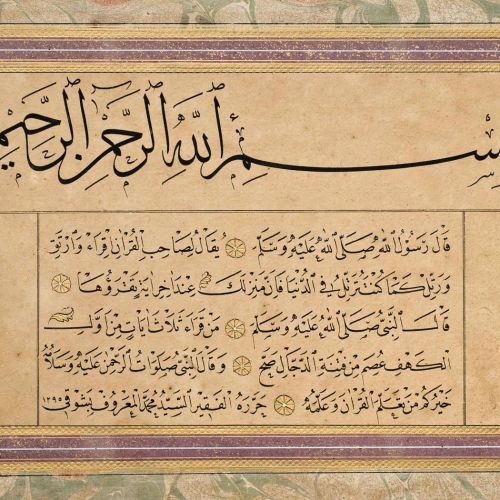 بسم الله الرحمن الرحيم
قال رسول الله صلى الله عليه وسلم يقال لصاحب القرآن اقرأ وارتق
ورتل كما كنت ترتل في الدنيا فإن منزلك عند آخر آية تقرؤها
قال النبي صلى الله عليه وسلم من قرأ ثلاث آيات من أول
الكهف عصم من فتنة الدجال صح وقال النبي صلوات الرحمن عليه وسلامه
خيركم من تعلم القرآن وعلمه حرره الفقير السيد محمد المعروف بشوقي ١٢٩٥